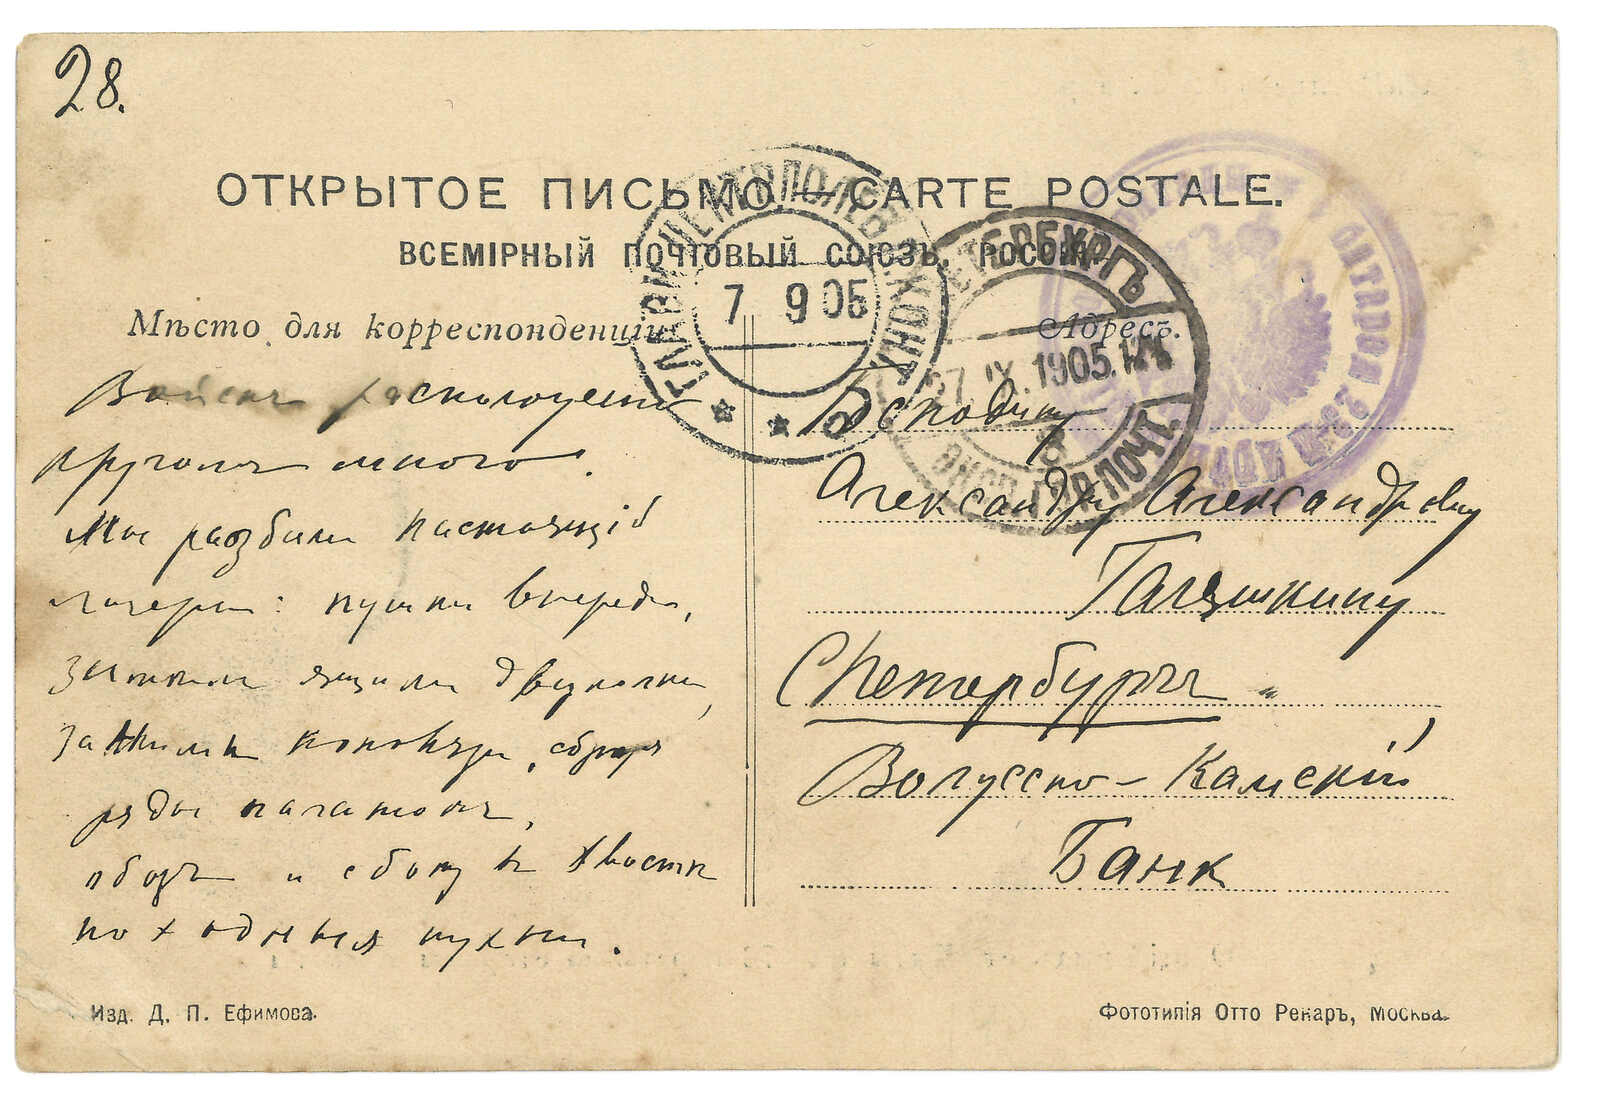 28.
ОТКРЫТОЕ ПИСЬМО.—CARTE POSTALE.
ВСЕМІРНЫЙ ПОЧТОВЫЙ СОЮЗЪ. РОССІЯ.
Мѣсто для корреспонденціи.
Адресъ.
7 9 05
ПЕТЕРБУРГЪ
27.IX.1905.
Войскъ расположено
кругомъ много.
Мы разбили настоящій
лагерь: пушки впереди,
затѣмъ ящики двуколки,
за ними коновязи, сбруя
ряды палатокъ,
обозъ и сбоку въ хвостѣ
походныя кухни.
Господину
Александру Александровичу
СПетербургъ
Камскій
Банк
Изд. Д. П. Ефимова.
Фототипія Отто Ренаръ, Москва.